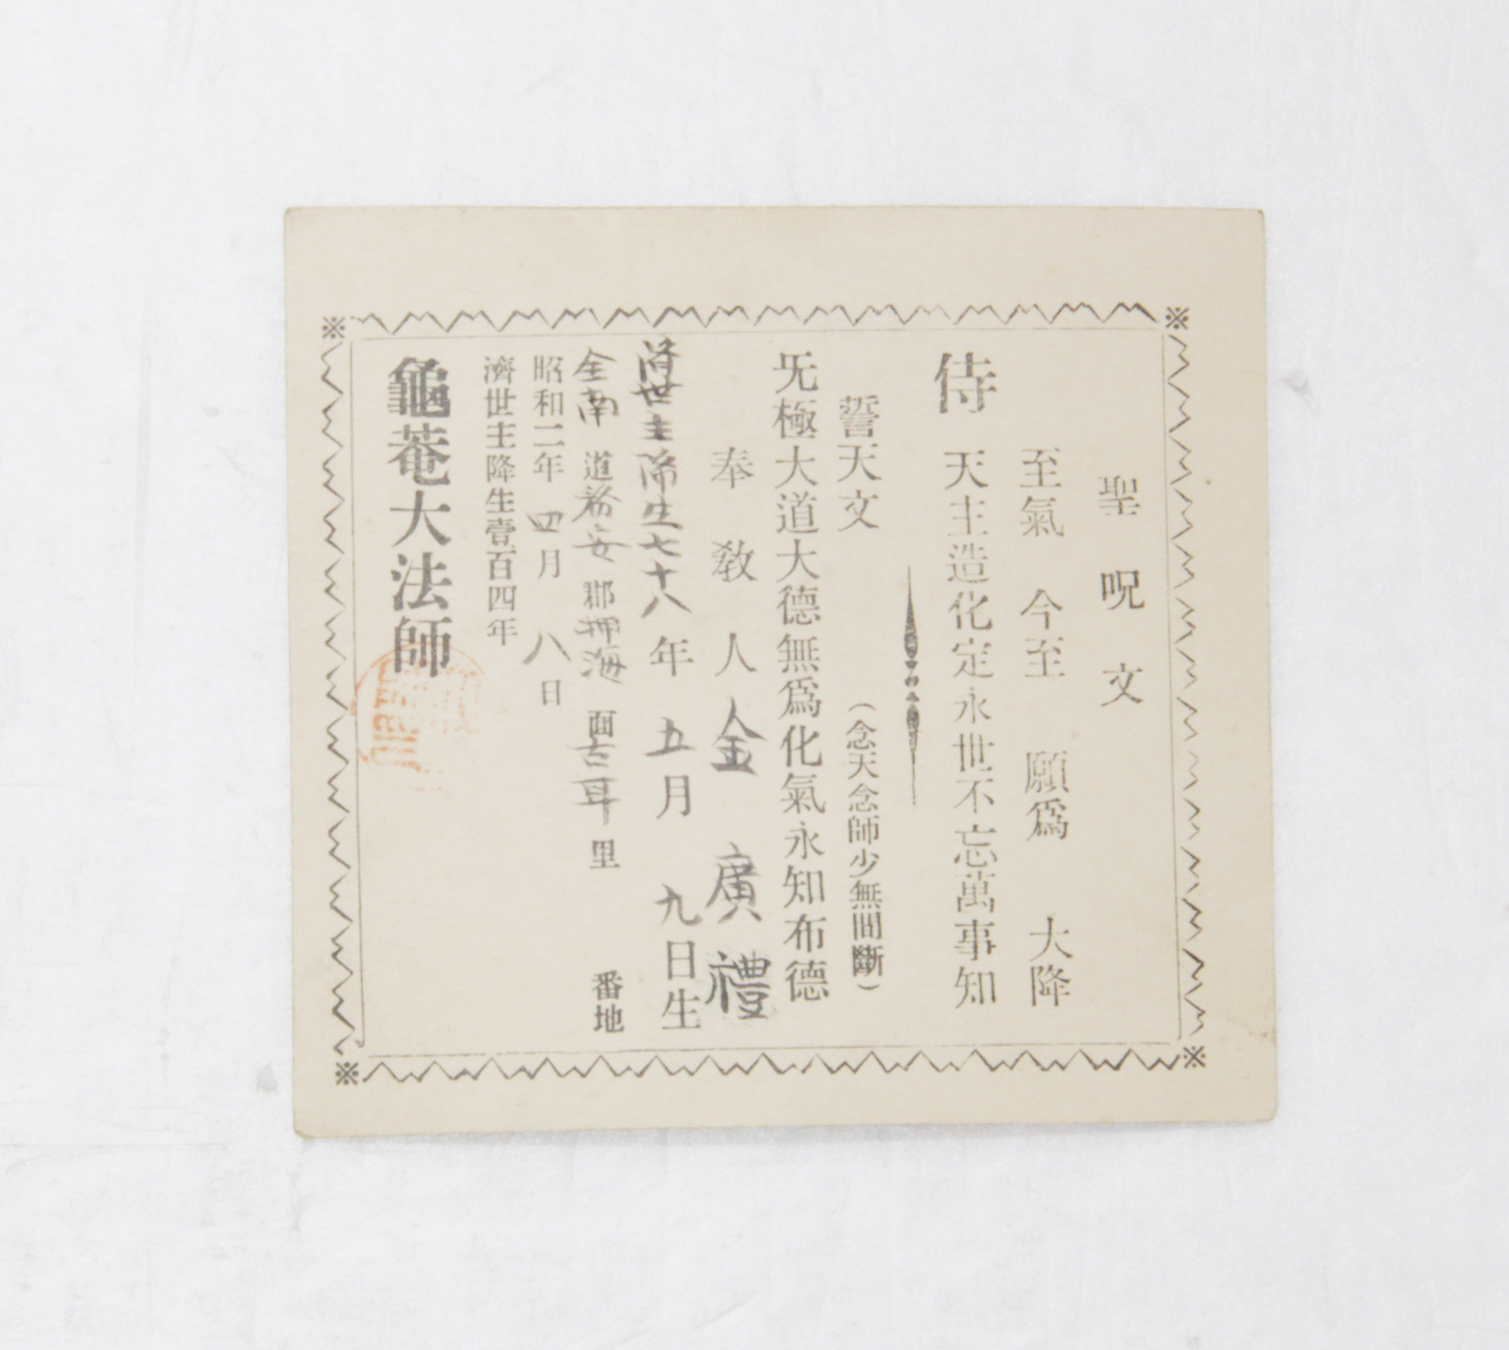 聖呪文
至氣 今至 願爲 大降
侍 天主造化定永世不忘萬事知
誓天文 (念天念師少無間斷)
旡極大道大德無爲化氣永知布德
奉教人 金廣禮
濟世主降生七十八年 五月 九日生
全南道務安郡押海面古耳里 番地
昭和二年 四月 八日
濟世主降生壹百四年
龜菴大法師